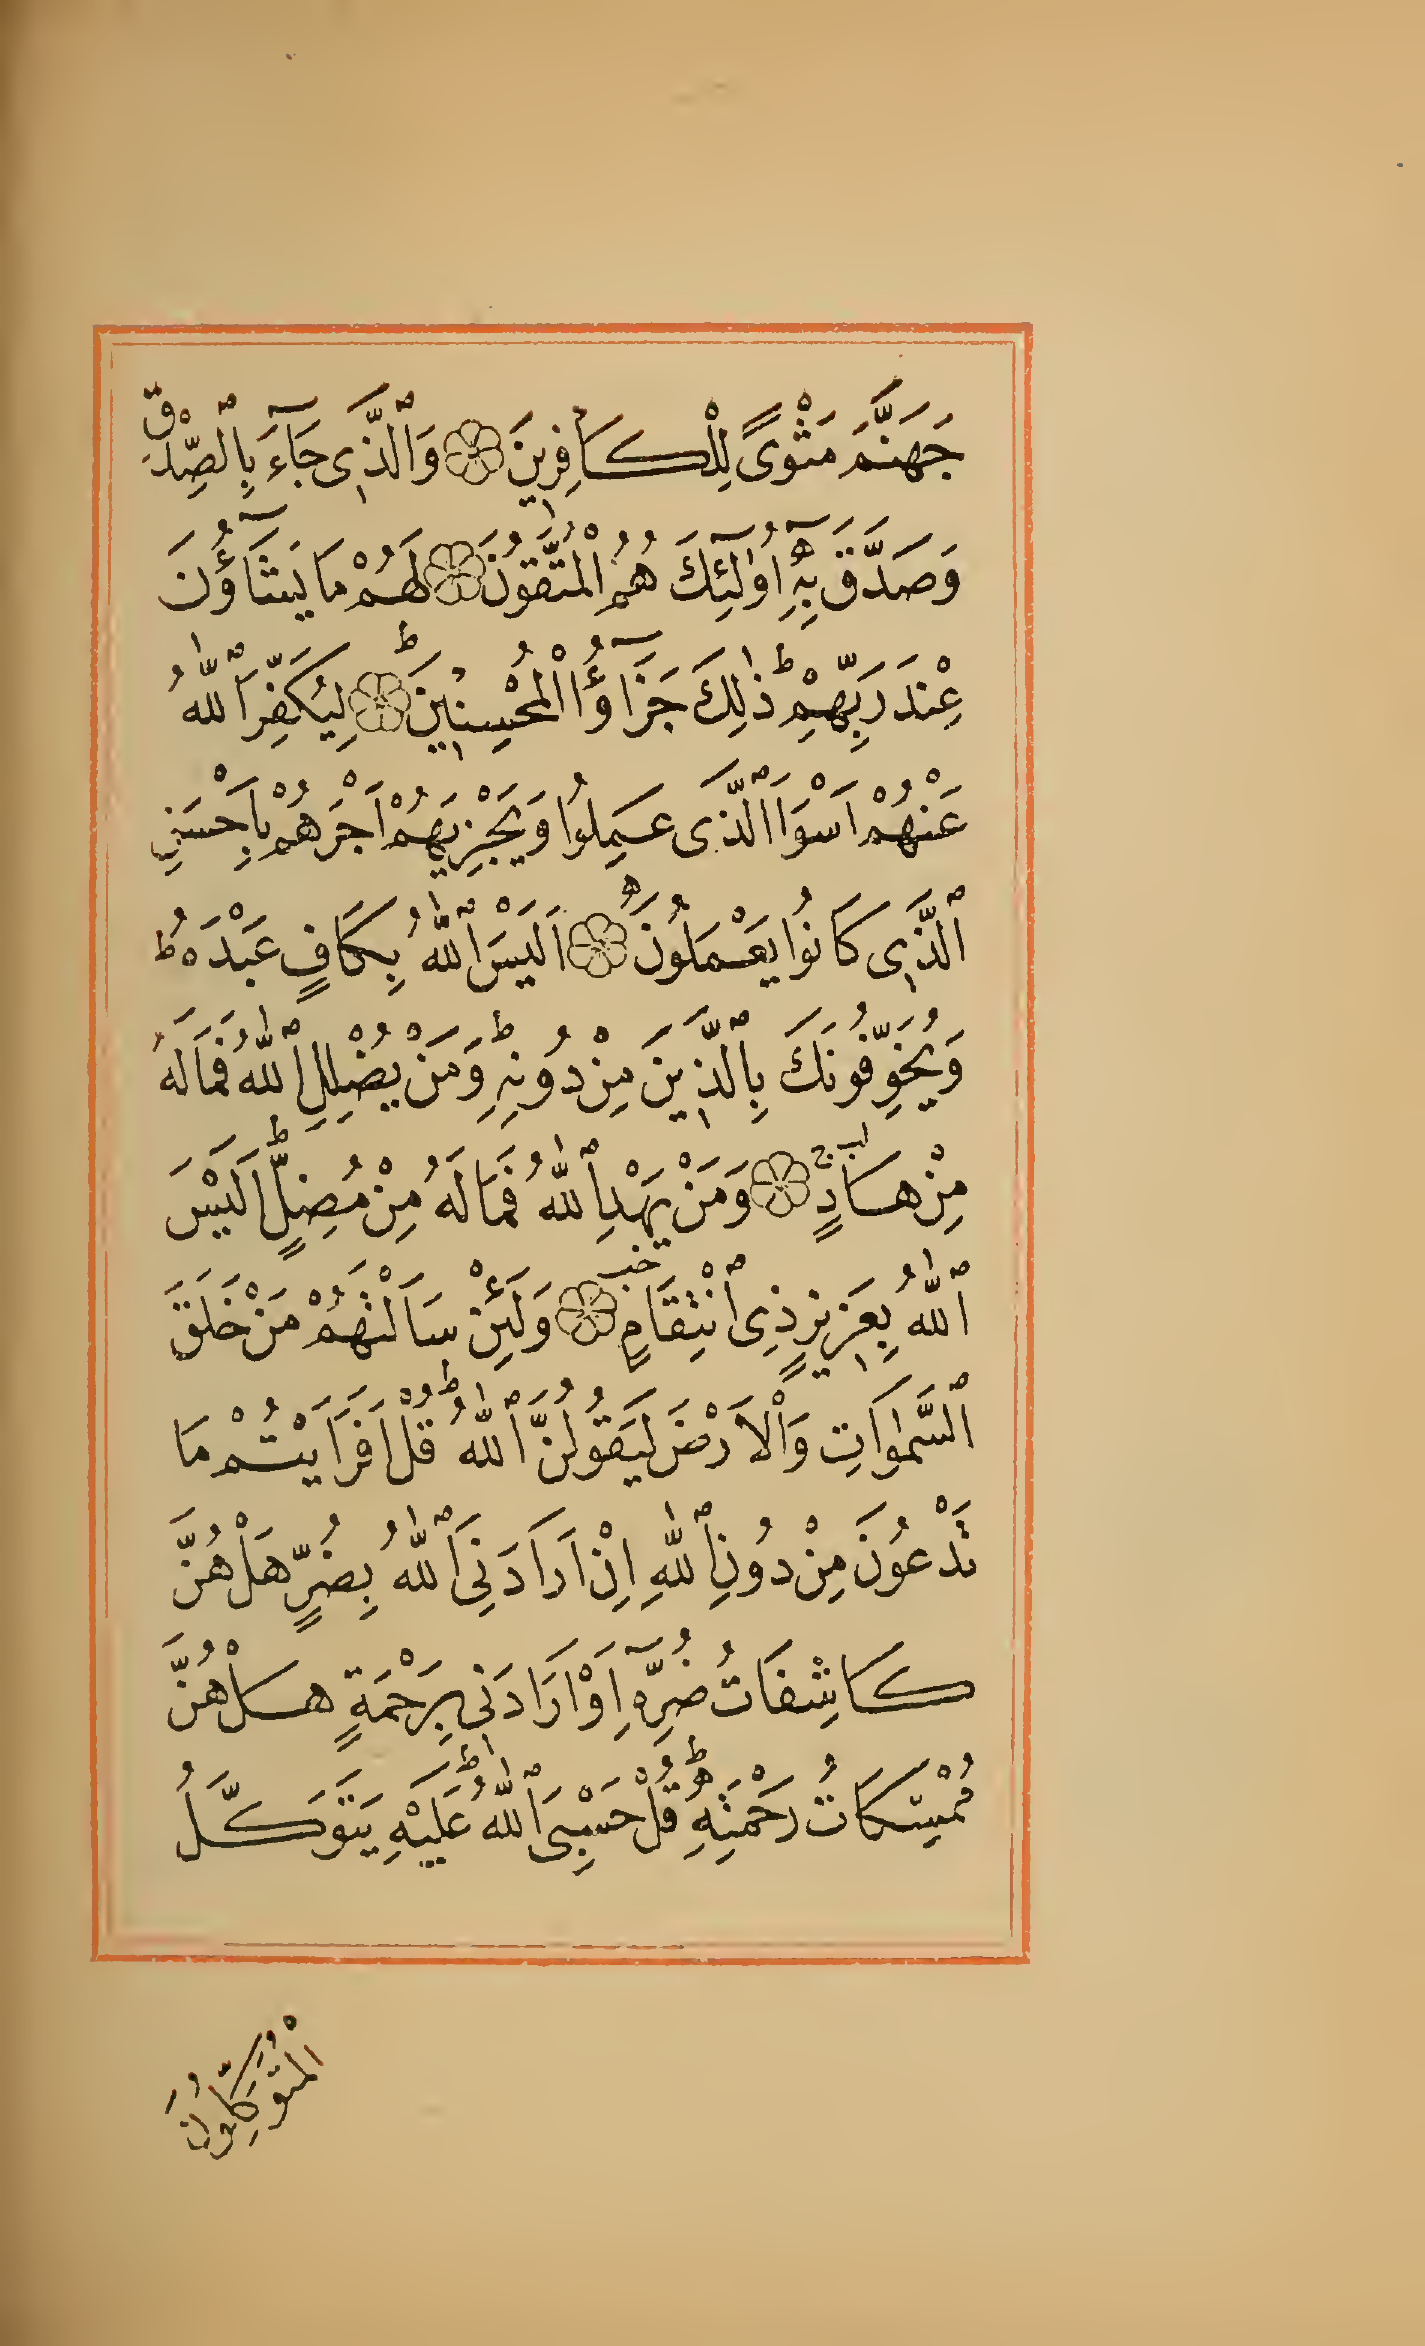 جَهَنَّمَ مَثْوًى لِلْكَافِرِينَ ۝ وَٱلَّذِى جَآءَ بِٱلصِّدْقِ
وَصَدَّقَ بِهِٓ اُولٰٓئِكَ هُمُ الْمُتَّقُونَ ۝ لَهُمْ مَا يَشَآؤُنَ
عِنْدَ رَبِّهِمْ ط ذٰلِكَ جَزَآؤُا الْمُحْسِنِينَ ط ۝ لِيُكَفِّرَ ٱللّٰهُ
عَنْهُمْ اَسْوَاَ ٱلَّذِى عَمِلُوا وَيَجْزِيَهُمْ اَجْرَهُمْ بِاَحْسَنِ
ٱلَّذِى كَانُوا يَعْمَلُونَ ه ۝ اَلَيْسَ ٱللّٰهُ بِكَافٍ عَبْدَهُ ط
وَيُخَوِّفُونَكَ بِٱلَّذِينَ مِنْ دُونِهِ ط وَمَنْ يُضْلِلِ ٱللّٰهُ فَمَا لَهُ
مِنْ هَادٍ لب ج ۝ وَمَنْ يَهْدِ ٱللّٰهُ فَمَا لَهُ مِنْ مُضِلٍّ ط اَلَيْسَ
ٱللّٰهُ بِعَزِيزٍ ذِى ٱنْتِقَامٍ خب ۝ وَلَئِنْ سَاَلْتَهُمْ مَنْ خَلَقَ
ٱلسَّمٰوَاتِ وَٱلْاَرْضَ لَيَقُولُنَّ ٱللّٰهُ ط قُلْ اَفَرَاَيْتُمْ مَا
تَدْعُونَ مِنْ دُونِ ٱللّٰهِ اِنْ اَرَادَنِىَ ٱللّٰهُ بِضُرٍّ هَلْ هُنَّ
كَاشِفَاتُ ضُرِّهِٓ اَوْ اَرَادَنِى بِرَحْمَةٍ هَلْ هُنَّ
مُمْسِكَاتُ رَحْمَتِهِ ط قُلْ حَسْبِىَ ٱللّٰهُ ط عَلَيْهِ يَتَوَكَّلُ
الْمُتَوَكِّلُونَ